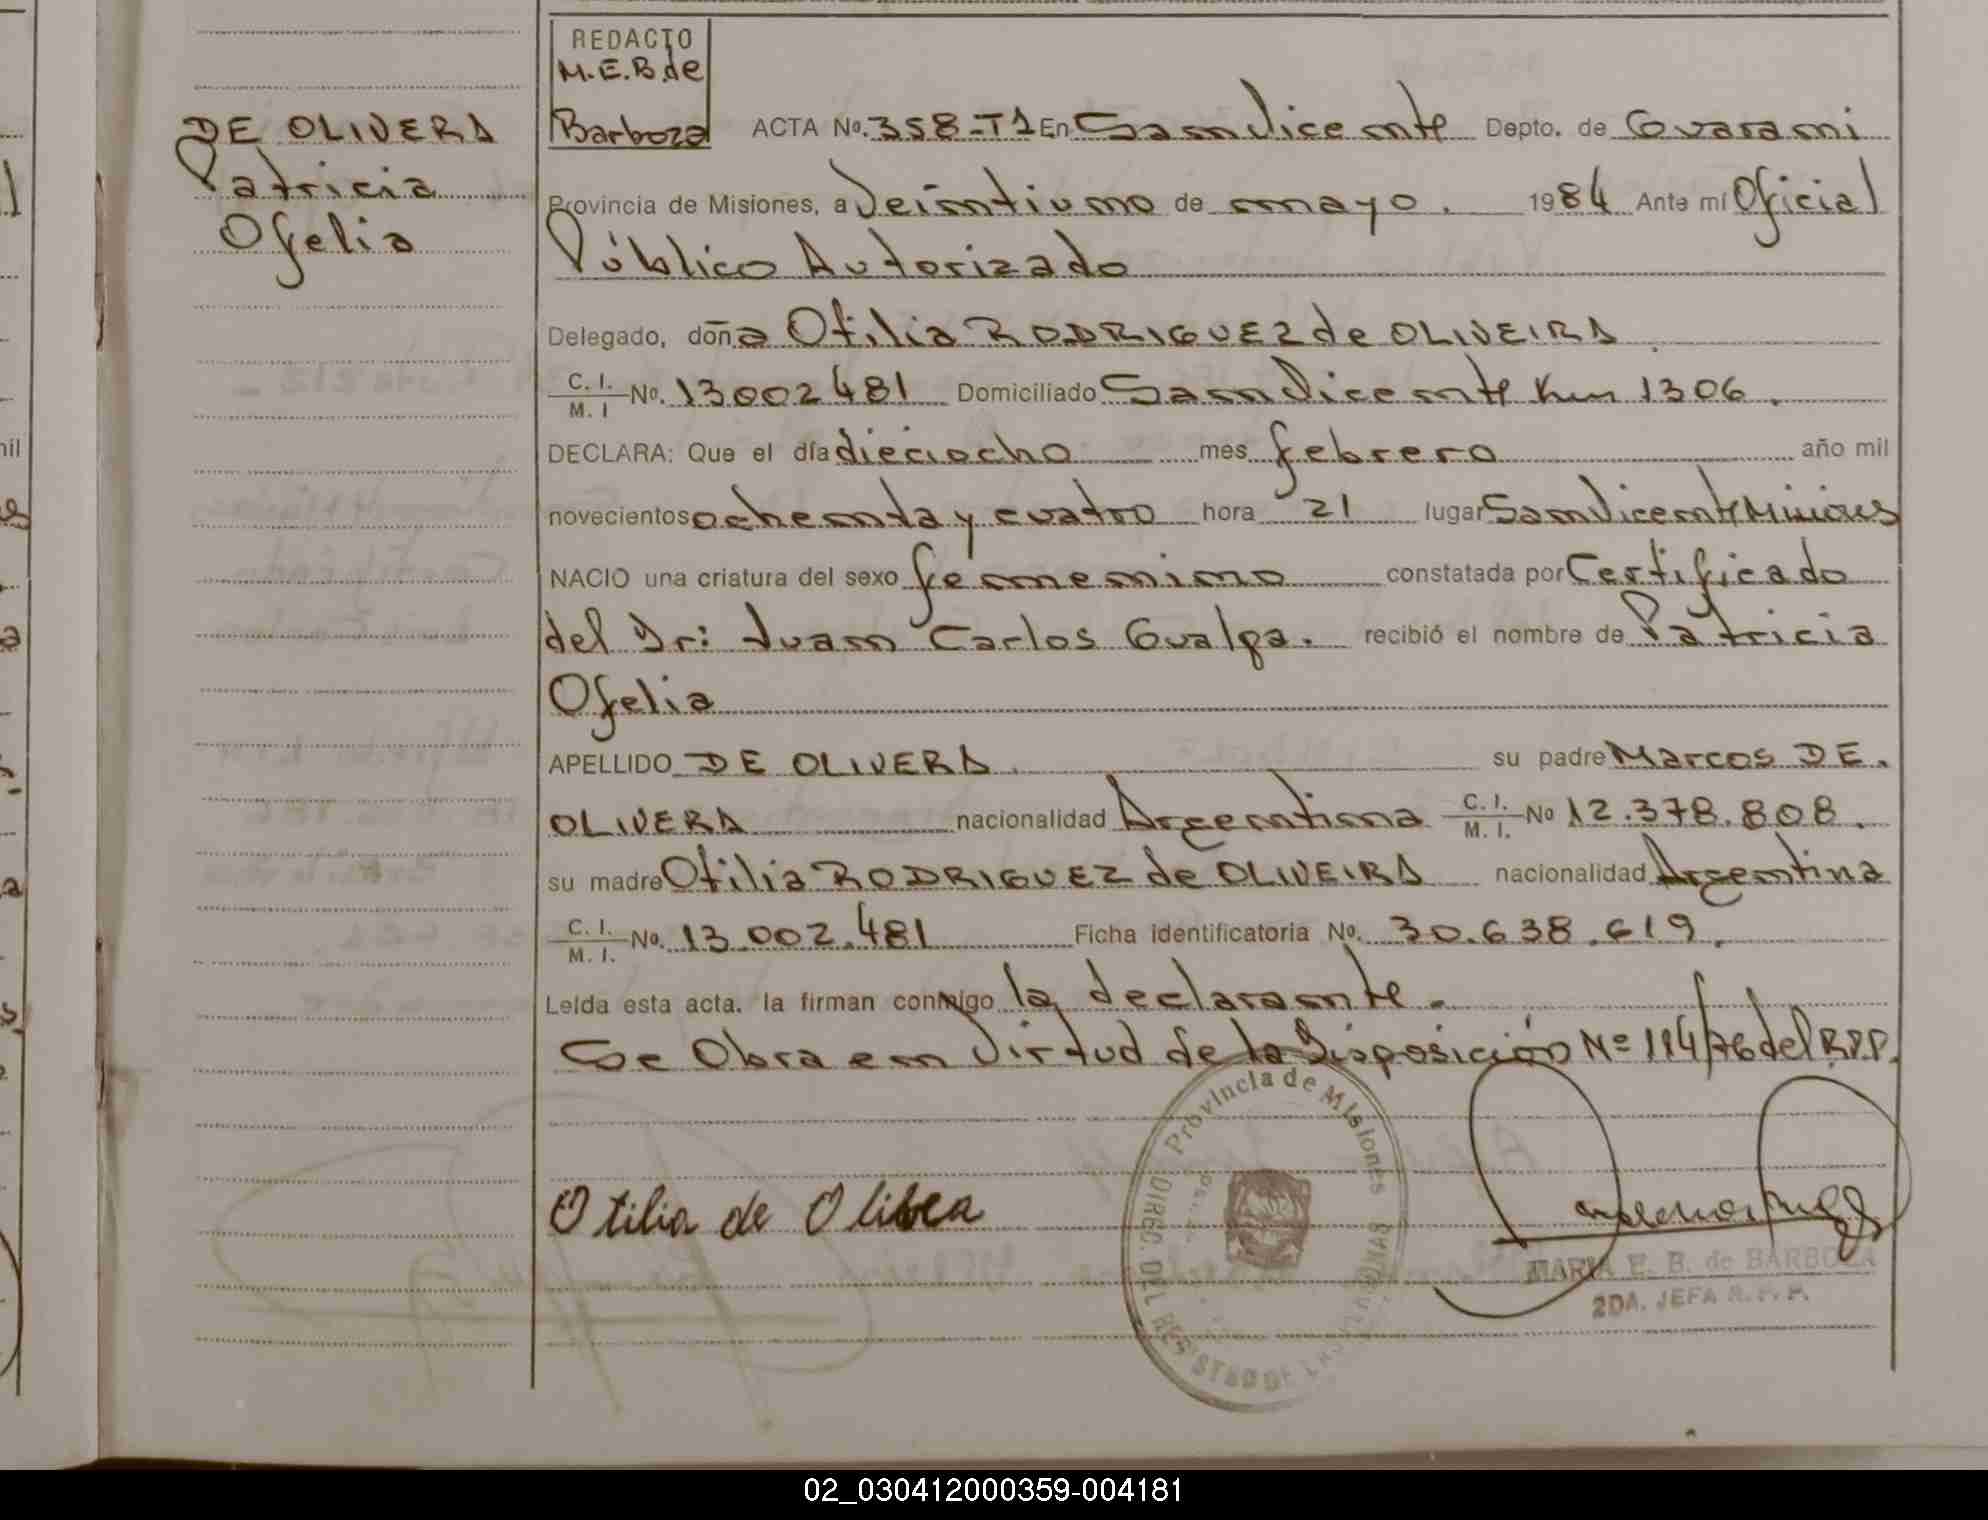 REDACTO
M.E.B. de
Barboza
DE OLIVERA
Patricia
Ofelia
ACTA No. 358-T1 En San Vicente Depto. de Guarani
Provincia de Misiones, a Veintiuno de mayo. 1984 Ante mí Oficial
Público Autorizado
Delegado, doña Otilia RODRIGUEZ de OLIVEIRA
C. I. / M. I No. 13002481 Domiciliado San Vicente Km 1306.
DECLARA: Que el día dieciocho mes febrero año mil
novecientos ochenta y cuatro hora 21 lugar San Vicente Misiones
NACIO una criatura del sexo femenino constatada por Certificado
del Dr: Juan Carlos Gualpa. recibió el nombre de Patricia
Ofelia
APELLIDO DE OLIVERA su padre Marcos DE.
OLIVERA nacionalidad Argentina C. I. / M. I. No 12.378.808.
su madre Otilia RODRIGUEZ de OLIVEIRA nacionalidad Argentina
C. I. / M. I. No. 13.002.481 Ficha identificatoria No. 30.638.619.
Leída esta acta. la firman conmigo la declarante.
Se Obra en Virtud de la Disposición Nº 114/76 del R.P.P.
Provincia de Misiones
Otilia de
MARIA E. B. de BARBOZA
2DA. JEFA R. P. P.
02_030412000359-004181